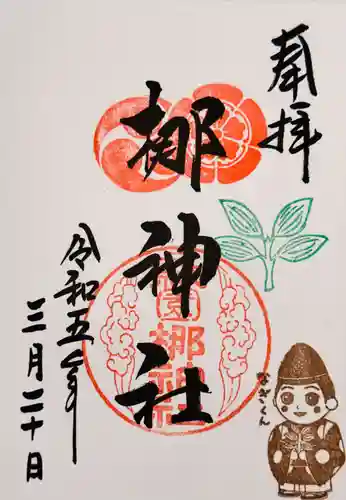 奉拝
梛神社
元祇園梛神社
令和五年
三月二十日
なぎくん